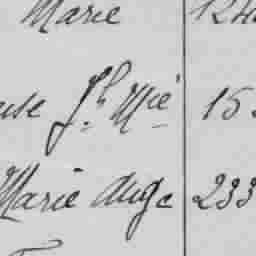 Marie 124
Jh. Mie 15
Marie Ange 233